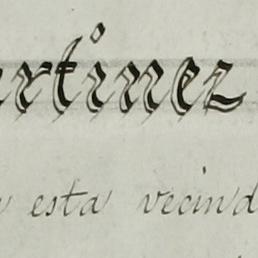 rtinez
esta vecind